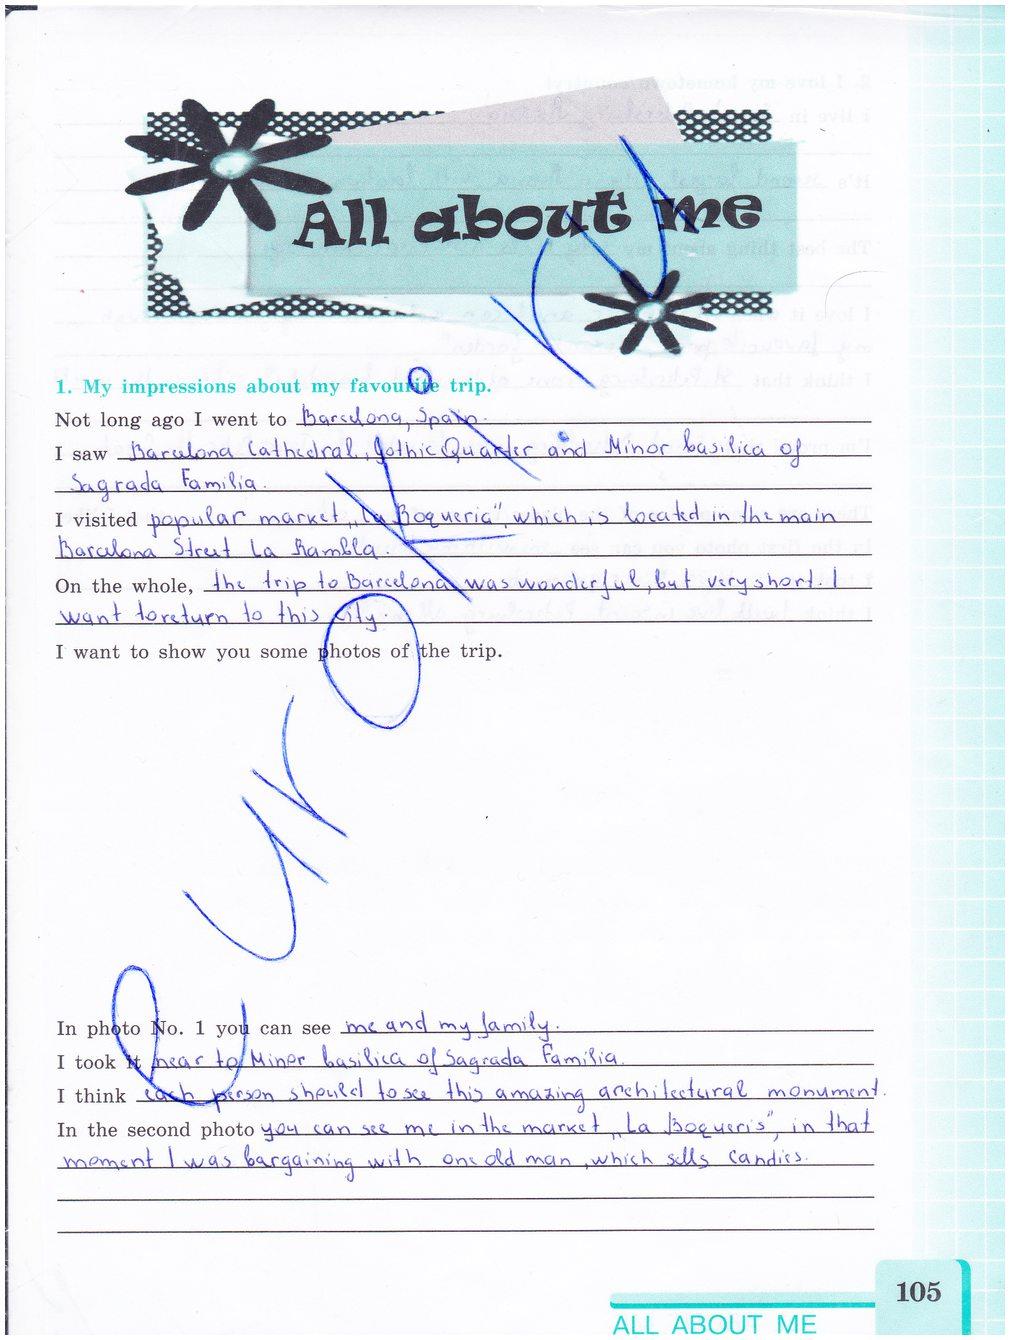 All about me
1. My impressions about my favourite trip.
Not long ago I went to Barcelona, Spain.
I saw Barcelona Cathedral, Gothic Quarter and Minor basilica of
Sagrada Familia.
I visited popular market „La Boqueria", which is located in the main
Barcelona Street La Rambla.
On the whole, the trip to Barcelona was wonderful, but very short. I
want to return to this city.
I want to show you some photos of the trip.
In photo No. 1 you can see me and my family.
I took it near to Minor basilica of Sagrada Familia.
I think each person should to see this amazing architectural monument.
In the second photo you can see me in the market „La Boqueris", in that
moment I was bargaining with one old man, which sells candies.
105
ALL ABOUT ME